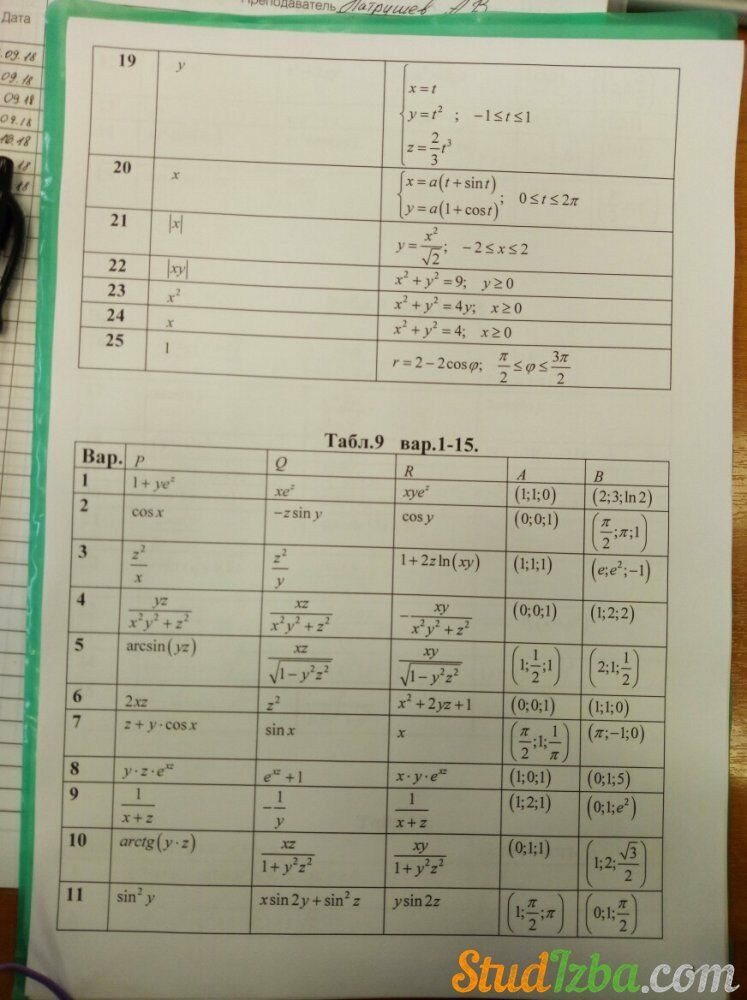 Преподаватель Патрушев А В
Дата
.09.18
.09.18
09.18
09.18
18
18
19 y x = t
y = t² ; −1 ≤ t ≤ 1
z = 2/3 t³
20 x x = a(t + sin t)
y = a(1 + cos t) ; 0 ≤ t ≤ 2π
21 |x| y = x²/√2; −2 ≤ x ≤ 2
22 |xy| x² + y² = 9; y ≥ 0
23 x² x² + y² = 4y; x ≥ 0
24 x x² + y² = 4; x ≥ 0
25 1 r = 2 − 2cos φ; π/2 ≤ φ ≤ 3π/2
Табл.9 вар.1-15.
Вар. P Q R A B
1 1 + ye^z xe^z xye^z (1;1;0) (2;3;ln 2)
2 cos x −z sin y cos y (0;0;1) (π/2;π;1)
3 z²/x z²/y 1 + 2z ln(xy) (1;1;1) (e;e²;−1)
4 yz/(x²y² + z²) xz/(x²y² + z²) −xy/(x²y² + z²) (0;0;1) (1;2;2)
5 arcsin(yz) xz/√(1 − y²z²) xy/√(1 − y²z²) (1;1/2;1) (2;1;1/2)
6 2xz z² x² + 2yz + 1 (0;0;1) (1;1;0)
7 z + y · cos x sin x x (π/2;1;1/π) (π;−1;0)
8 y · z · e^xz e^xz + 1 x · y · e^xz (1;0;1) (0;1;5)
9 1/(x + z) −1/y 1/(x + z) (1;2;1) (0;1;e²)
10 arctg(y · z) xz/(1 + y²z²) xy/(1 + y²z²) (0;1;1) (1;2;√3/2)
11 sin² y x sin 2y + sin² z y sin 2z (1;π/2;π) (0;1;π/2)
StudIzba.com